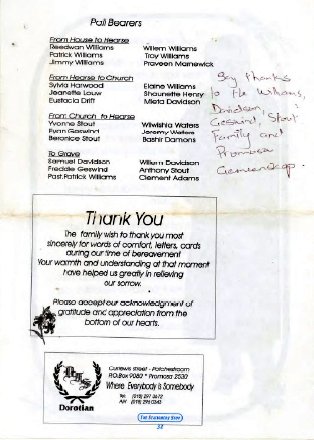 Pall Bearers
From House to Hearse
Reedwan Williams Willem Williams
Patrick Williams Troy Williams
Jimmy Williams Praveen Marnewick
From Hearse to Church
Sylvia Harwood Elaine Williams
Jeanette Louw Shaunette Henry
Eustacia Drift Mieta Davidson
From Church to Hearse
Yvonne Stout Wilwishia Waters
Evan Geswind Jeremy Wolters
Beronice Stout Bashir Damons
To Grave
Samuel Davidson Willem Davidson
Freddie Geswind Anthony Stout
Past.Patrick Williams Clement Adams
Say thanks
to the Williams,
Davidson,
Geswind, Stout
Family and
Promosa
Gemeenskap.
Thank You
The family wish to thank you most
sincerely for words of comfort, letters, cards
during our time of bereavement
Your warmth and understanding at that moment
have helped us greatly in relieving
our sorrow.
Please accept our acknowledgment of
gratitude and appreciation from the
bottom of our hearts.
Curlews street - Potchefstroom
P.O.Box 9080 * Promosa 2530
Where Everybody is Somebody
Tel: (018) 297 3672
A/H (018) 2910343
Dorotian
38